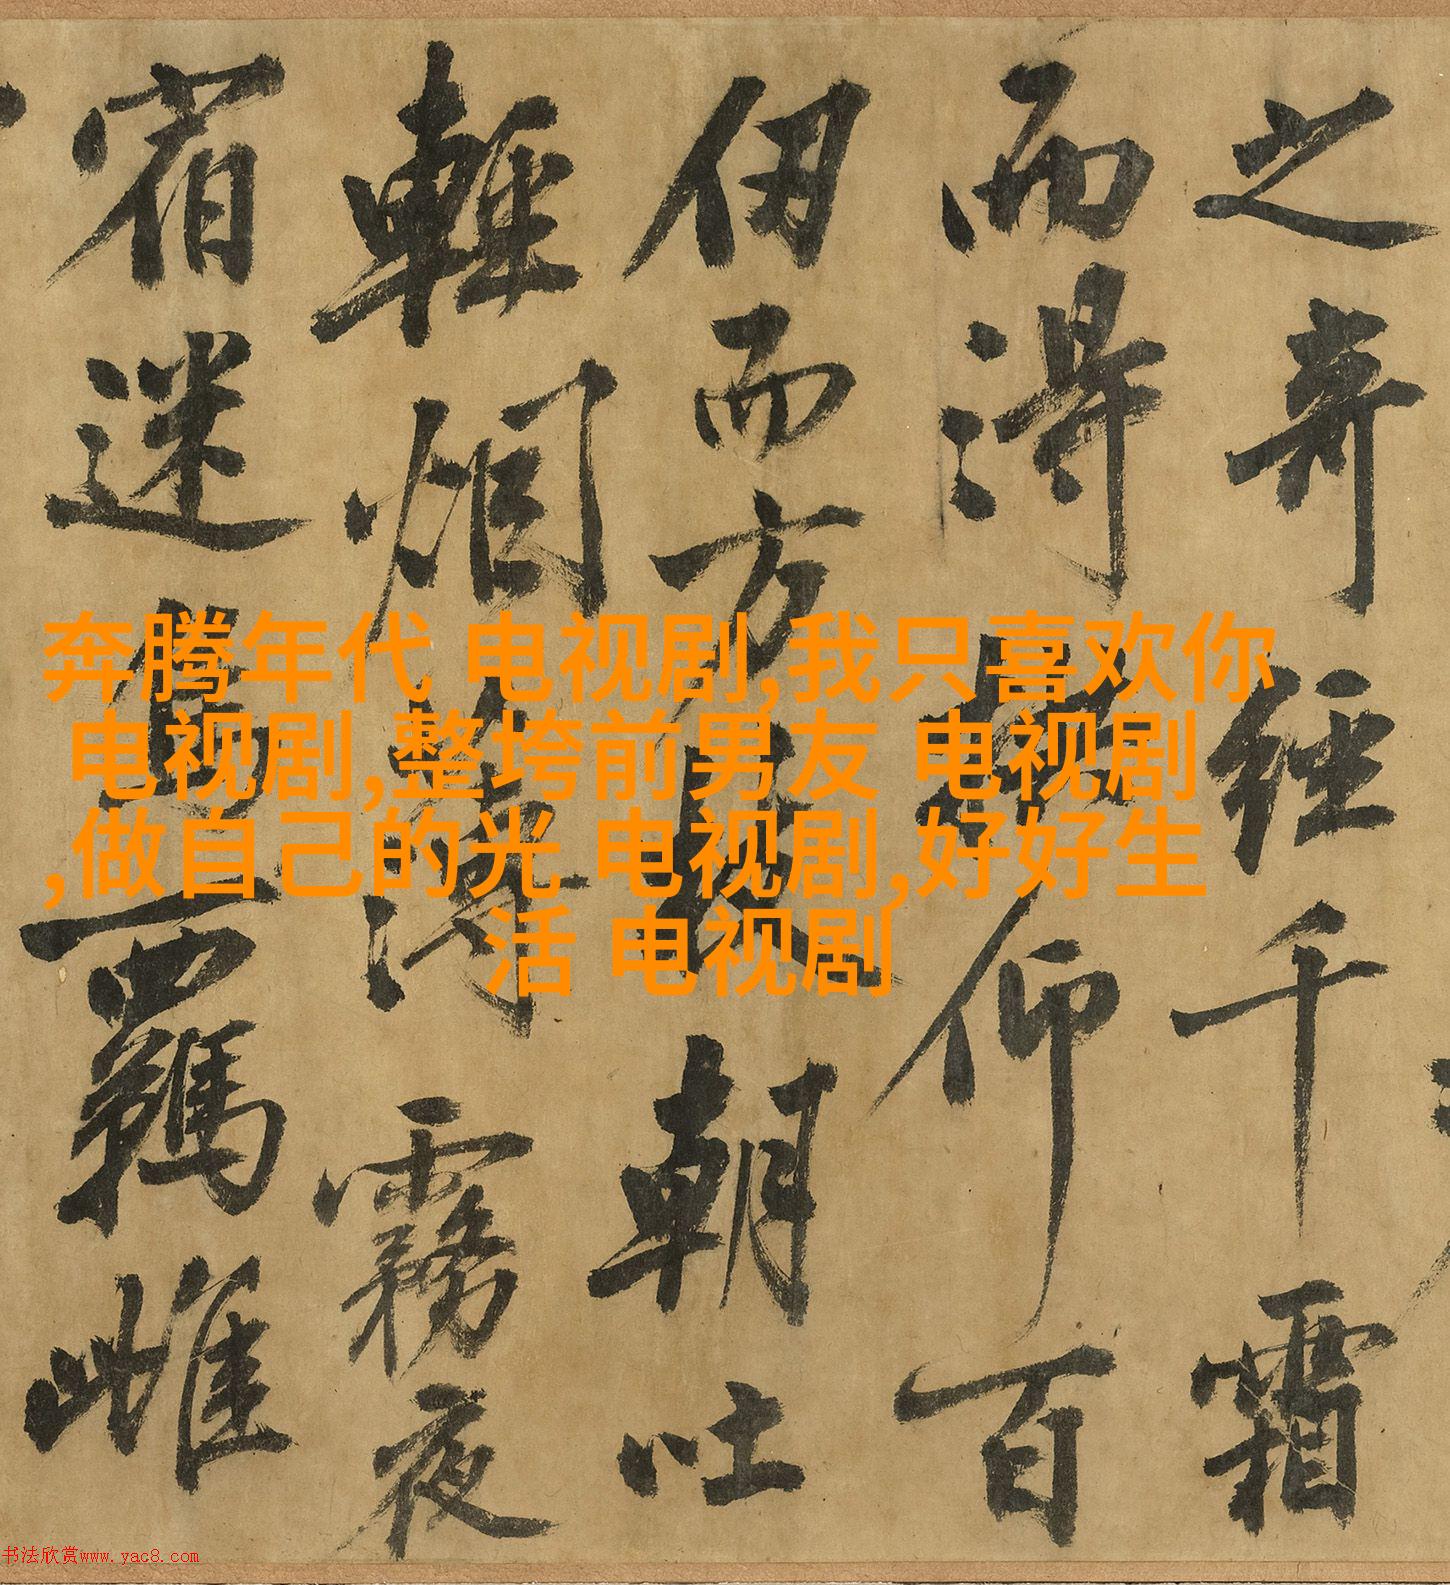 之奇經千霜
而得仰百
仞而方枝朝吐
輕烟薄霧夜
宿迷鳥羈雌
奔腾年代 电视剧,我只喜欢你
电视剧,整垮前男友 电视剧
,做自己的光 电视剧,好好生
活 电视剧
书法欣赏www.yac8.com